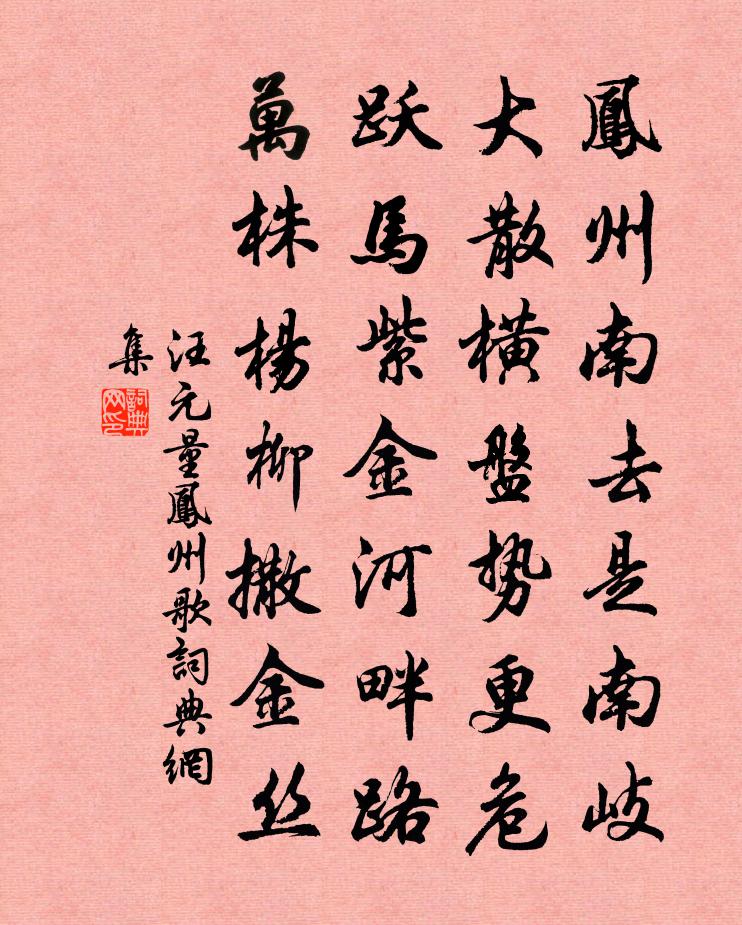 鳳州南去是南岐
大散橫盤势更危
跃馬紫金河畔路
萬株楊柳撒金丝
汪元量鳳州歌詞典網
集
詞典
网印